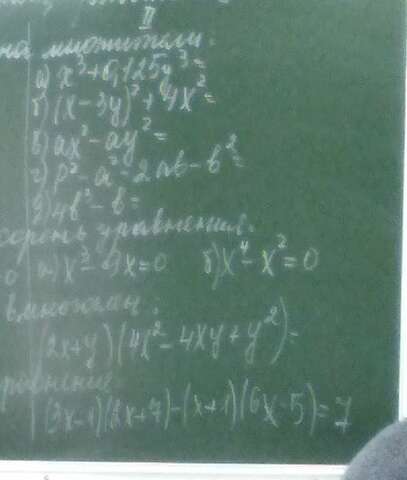 II
на множители.
а) x³+0,125y³=
б) (x-3y)²+4x²=
в) ax²-ay²=
г) p²-a²-2ab-b²=
д) 4b³-b=
корень уравнения.
а) x³-9x=0 б) x⁴-x²=0
(2x+y)(4x²-4xy+y²)=
(3x-1)(2x+7)-(x+1)(6x-5)=7